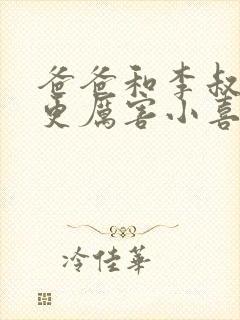 爸爸和李叔
更厲害小喜
冷佳華